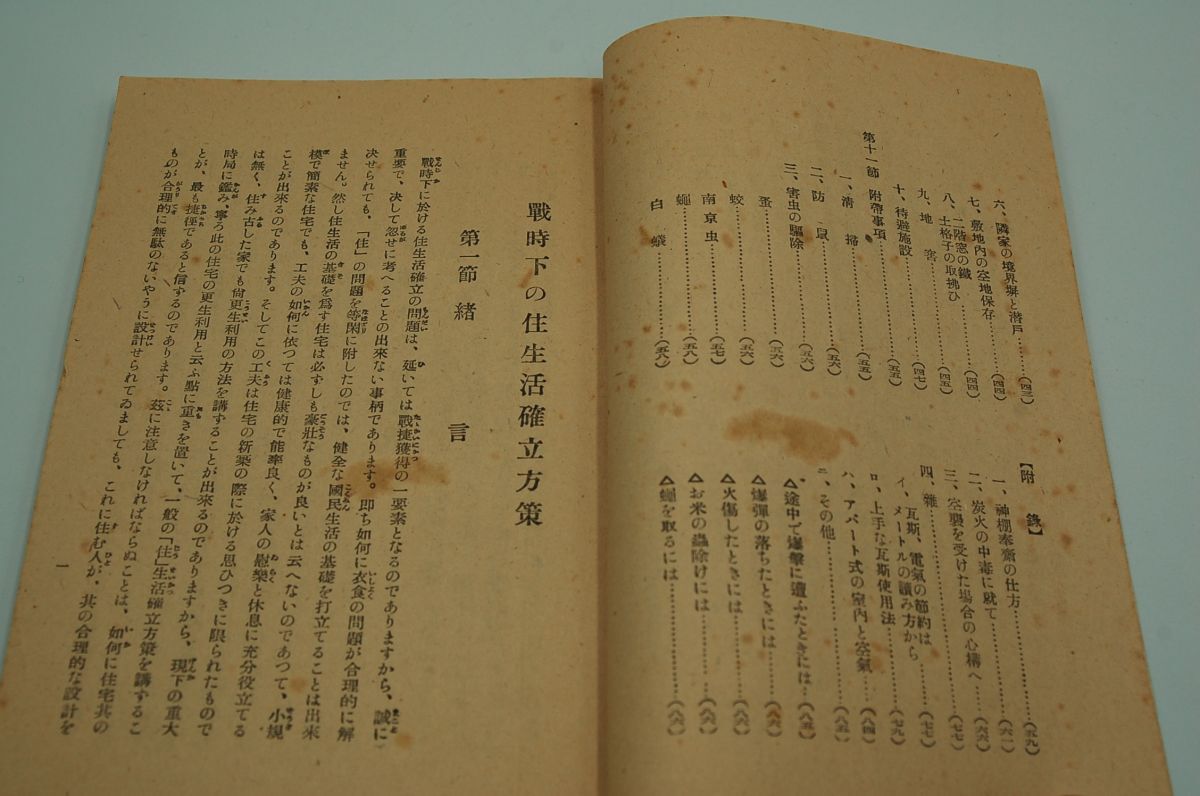 六、隣家の境界塀と潜戸……（四三）
七、敷地内の空地保存……（四四）
二階窓の鐵
八、土格子の取拂ひ……（四五）
九、地窖……（四七）
十、待避施設
第十一節 附帶事項……（五五）
一、淸掃……（五五）
二、防鼠……（五六）
三、害虫の驅除……（五六）
蚤……（五六）
蚊……（五六）
南京虫……（五七）
蠅……（五八）
白蟻……（五八）
【附錄】
一、神棚奉齋の仕方……（五九）
二、炭火の中毒に就て……（六一）
三、空襲を受けた場合の心構へ……（六六）
四、雜……（七七）
瓦斯、電氣の節約は……（七七）
イ、メートルの讀み方から……（七九）
ロ、上手な瓦斯使用法……（八四）
ハ、アパート式の室內と空氣……（八五）
ニ、その他
△途中で爆擊に遭ふたときには……（八五）
△爆彈の落ちたときには……（八六）
△火傷したときには……（八六）
△お米の蟲除けには……（八六）
△蠅を取るには……（八六）
戰時下の住生活確立方策
第一節 緖言
戰時下に於ける住生活確立の問題は、延いては戰捷獲得の一要素となるのでありますから、誠に
重要で、決して忽せに考へることの出來ない事柄であります。卽ち如何に衣食の問題が合理的に解
決せられても、「住」の問題を等閑に附したのでは、健全な國民生活の基礎を打立てることは出來
ません。然し住生活の基礎を爲す住宅は必ずしも豪壯なものが良いとは云へないのであつて、小規
模で簡素な住宅でも、工夫の如何に依つては健康的で能率良く、家人の慰樂と休息に充分役立てる
ことが出來るのであります。そしてこの工夫は住宅の新築の際に於ける思ひつきに限られたもので
は無く、住み古した家でも尙更生利用の方法を講ずることが出來るのでありますから、現下の重大
時局に鑑み、寧ろ此の住宅の更生利用と云ふ點に重きを置いて、一般の「住」生活確立方策を講ずるこ
とが、最も捷徑であると信ずるのであります。玆に注意しなければならぬことは、如何に住宅其の
ものが合理的に無駄のないやうに設計せられてゐましても、これに住む人が、其の合理的な設計を
一